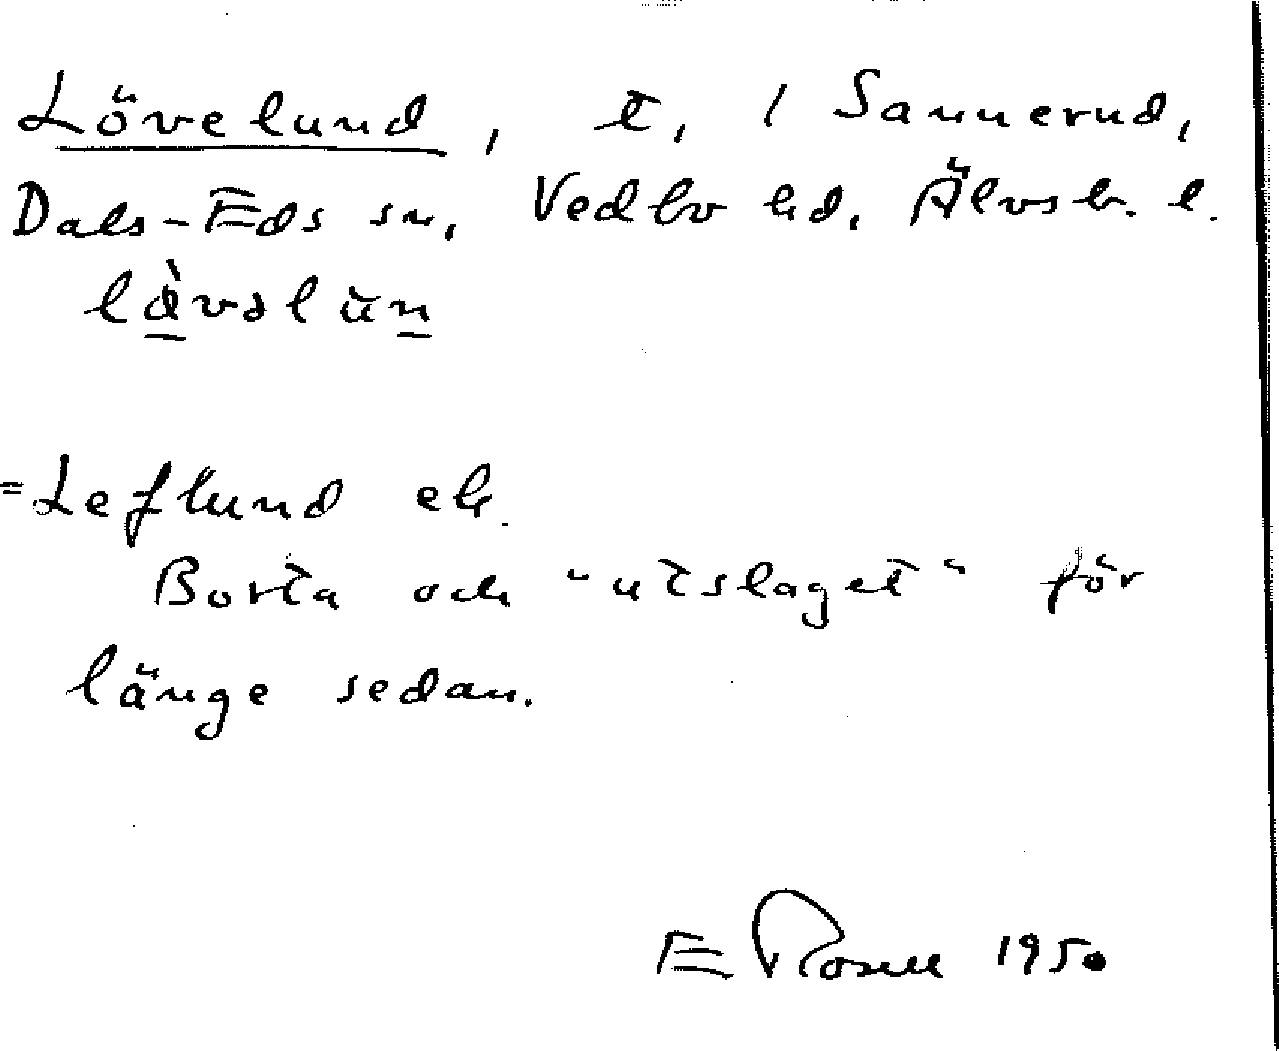 Lövelund, t, / Sannerud,
Dals-Eds sn, Vedbo hd, Älvsb. l.
lə̀vəlŭn
=Leflund ek.
Borta och "utslaget" för
länge sedan.
E Rosell 1950